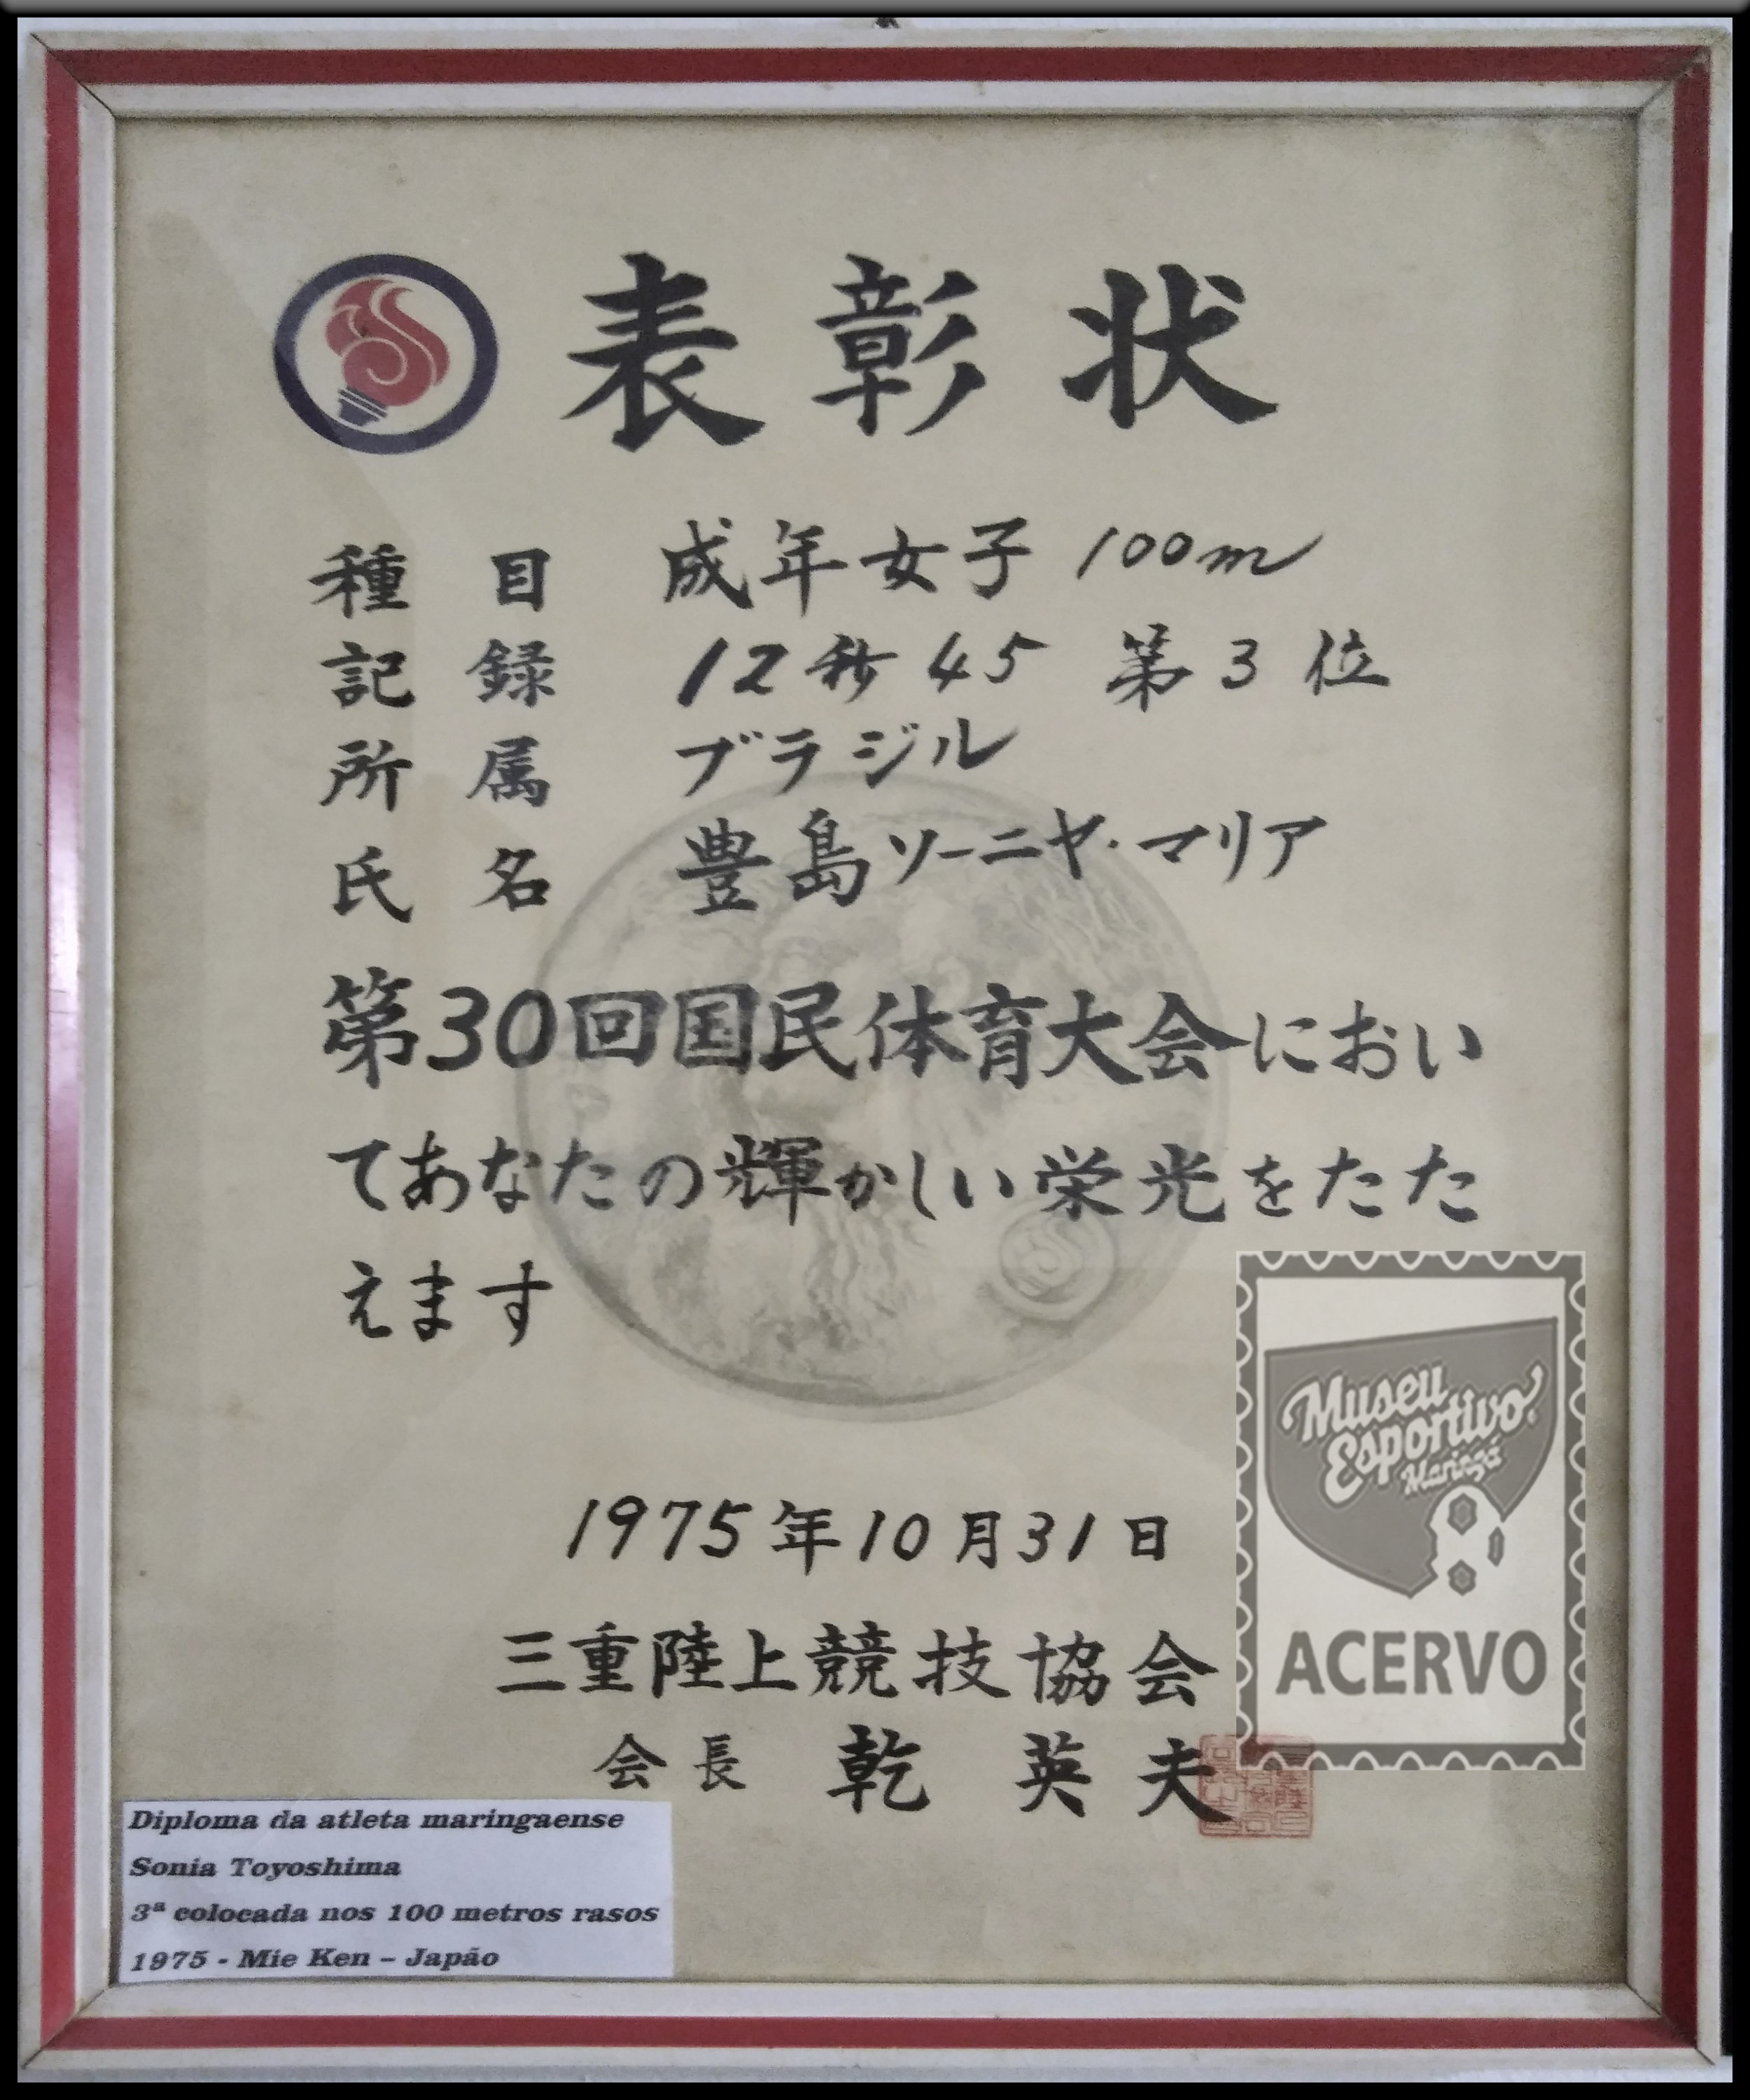 表彰状
種目 成年女子 100m
記録 12秒45 第3位
所属 ブラジル
氏名 豊島ソーニヤ・マリア
第30回国民体育大会におい
てあなたの輝かしい栄光をたた
えます
1975年10月31日
三重陸上競技協会
会長 乾 英夫
Museu
Esportivo
Maringá
ACERVO
Diploma da atleta maringaense
Sonia Toyoshima
3ª colocada nos 100 metros rasos
1975 - Mie Ken – Japão